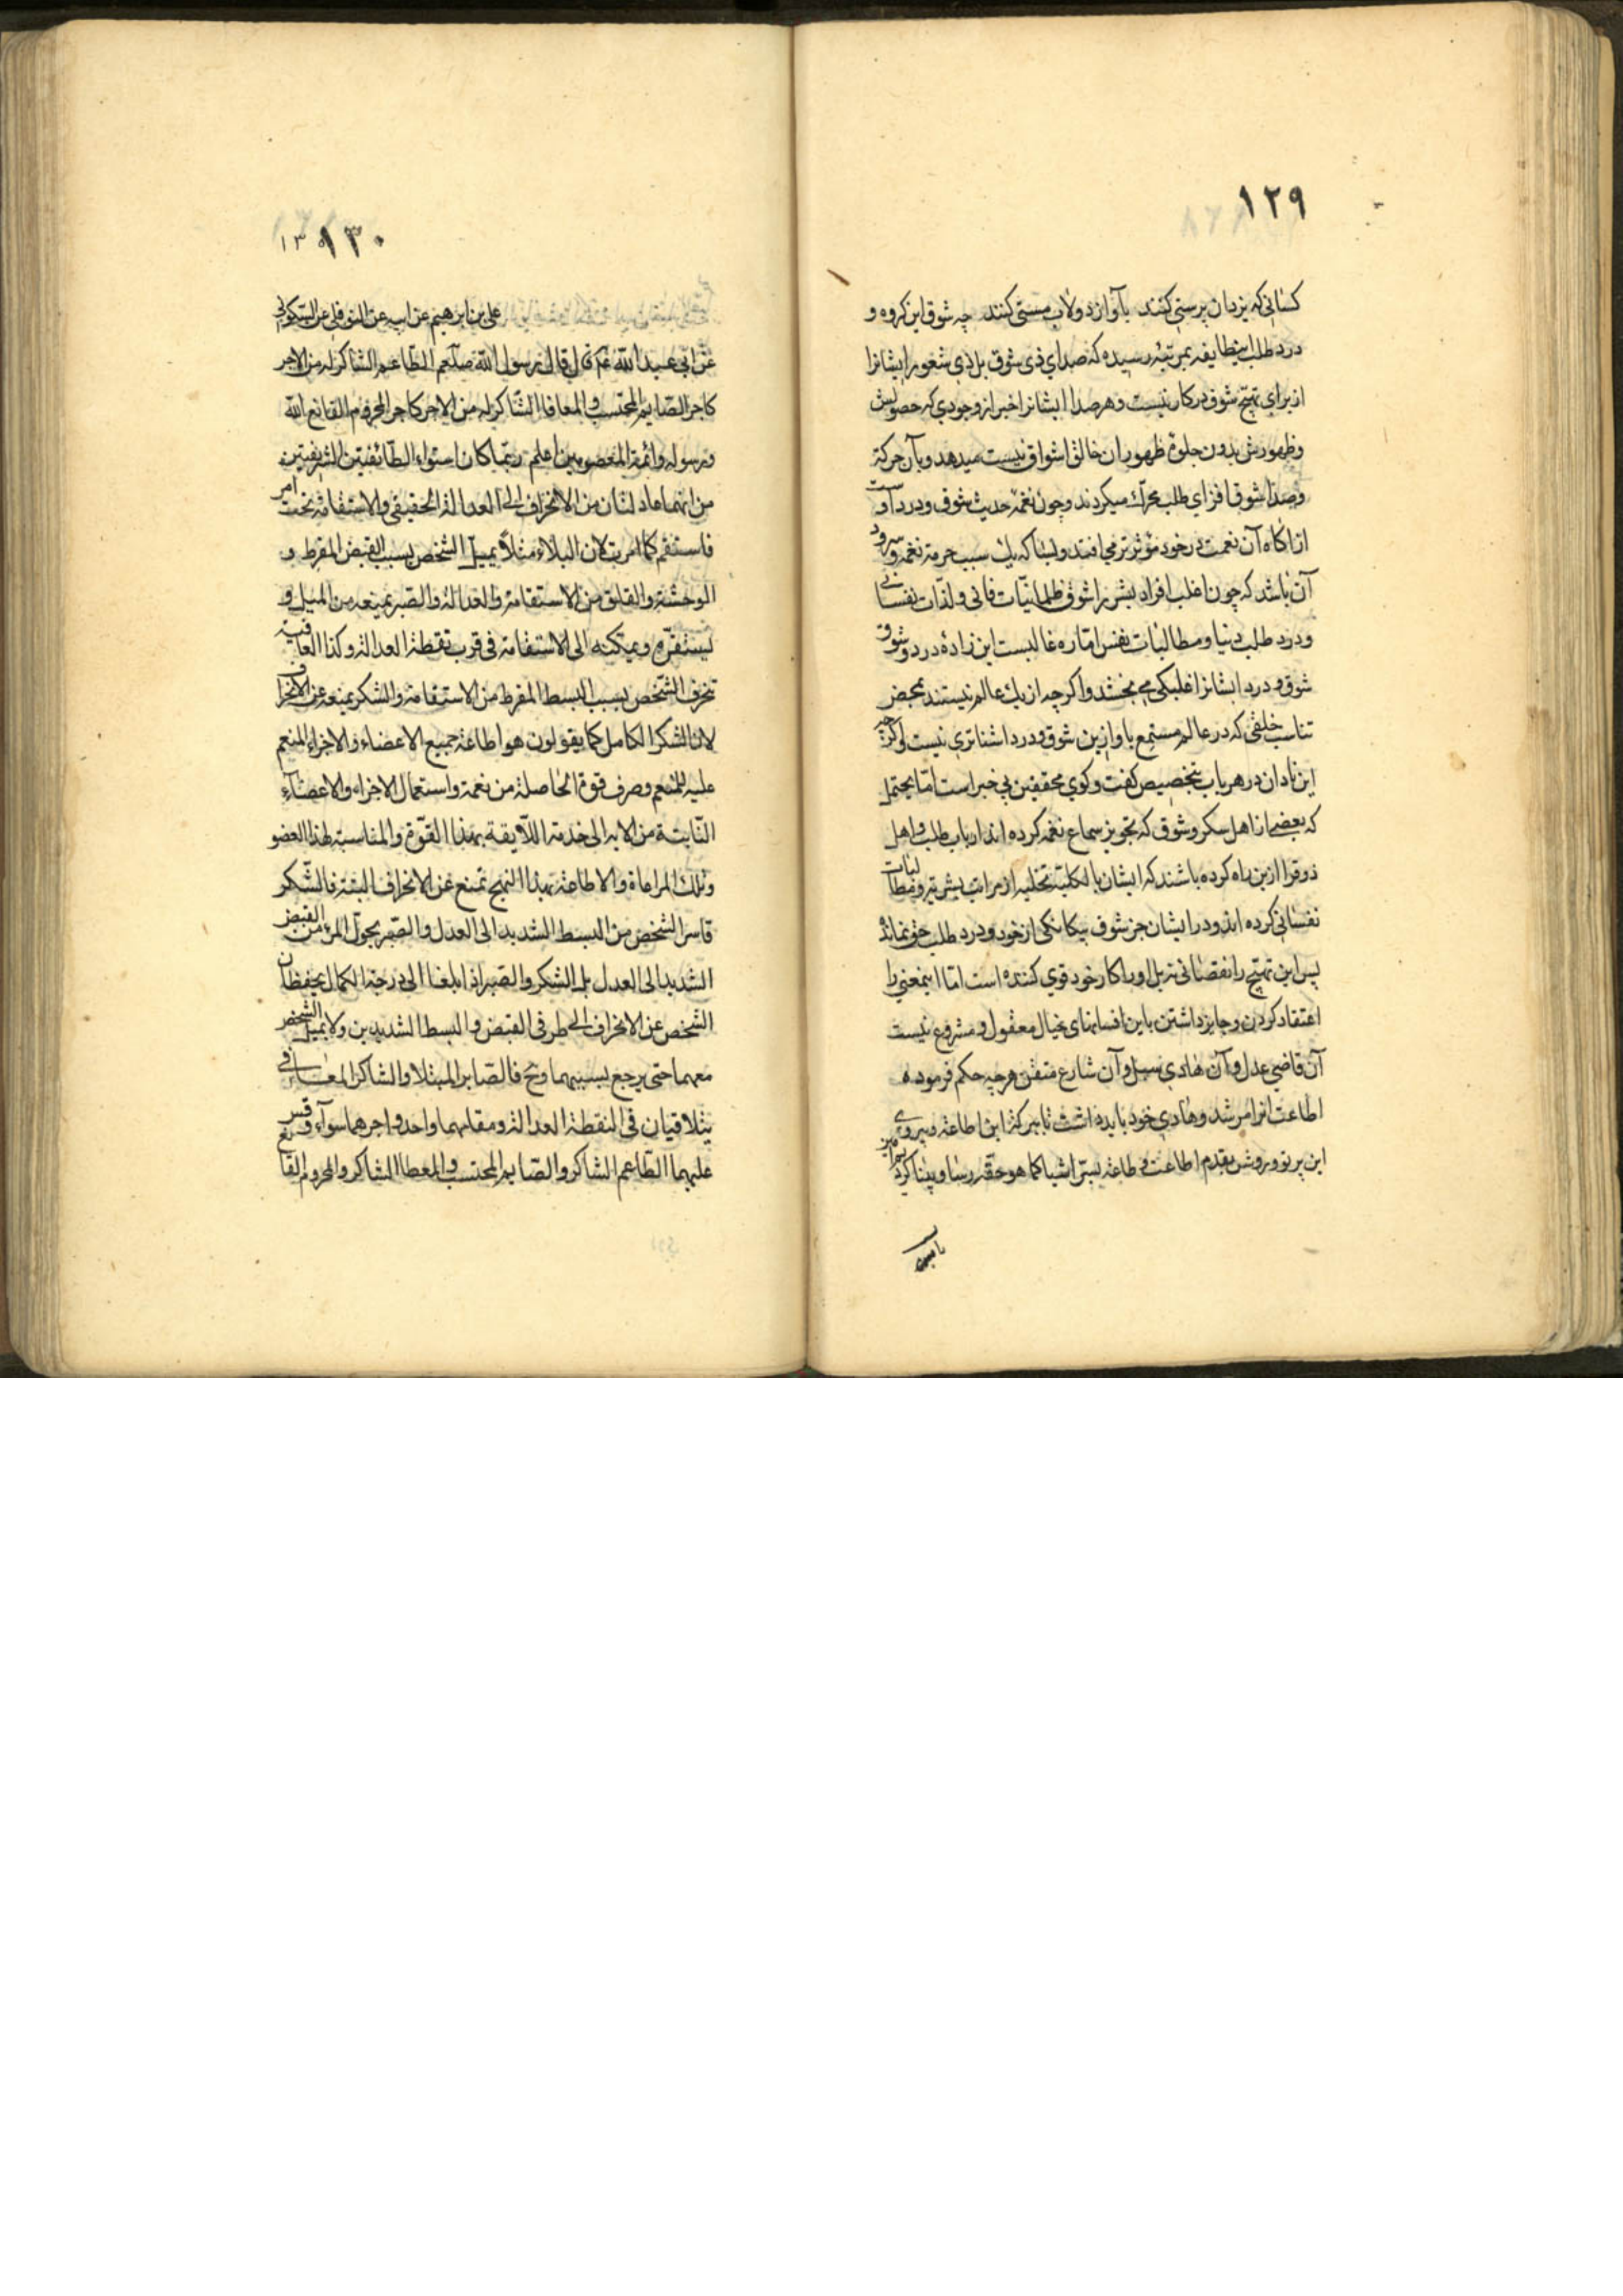 ١٢٩
کسانی که یزدان پرستی کنند بآواز دولاب مستی کنند چه شوق این کروه و
درد طلب اینطایفه بمرتبه رسیده که صدای ذی شوق بل ذی شعور ایشانرا
از برای تهیج شوق در کار نیست و هر صدا ایشانرا خبر از وجودی که حصولش
و ظهورش بدون جلوهٔ ظهور ان خالق اشواق نیست میدهد و بآن حرکة
وصدا شوق افزای طلب محرك میکردند و چون نغمه حدیث شوق و درد
از اکاه آن نعمت در خود مؤثرتر می افتد و بسا که یك سبب حرمة نغمه و سرود
آن باشد که چون اغلب افراد بشر را شوق ظلمانیات فانی و لذات نفسانی
و درد طلب دنیا و مطالبات نفس اماره غالبست این زاده درد و شوق
شوق و درد ایشانرا غلبکی می بخشد و اکر چه از یك عالم نیستند بمحض
تناسب خلقی که در عالم مستمع باواز این شوق و درد اشناتری نیست
این نادان در هر باب بتخصیص کفت وکوی محققین بی خبر است اما یحتمل
که بعضی از اهل سکر و شوق که تجویز سماع نغمه کرده اند ارباب طلب و اهل
ذوقرا ازین راه کرده باشند که ایشان بالکلیة تخلیه از مراتب بشریة و مطالبات
نفسانی کرده اند و در ایشان جز شوق بیکانکی از خود و درد طلب حق نمانده
پس این تهیج را نقصانی نه بل او را کار خود قوی کننده است اما اینمعنی را
اعتقاد کردن و جایز داشتن باین افسانهای خیال معقول و مشروع نیست
آن قاضی عدل و آن هادی سبیل و آن شارع متقن هرچه حکم فرموده
اطاعت انرا مرشد و هادی خود باید داشت تا ببرکة این اطاعة و پیروی
این پرتو و روشن بقدم اطاعت و طاعة بسر اشیا کما هو حقه رسا و بینا کرد
١٣٠
علی بن ابرهیم عن ابیه عن النوفلی عن السکونی
عن ابی عبد الله عم قال قال رسول الله صلعم الطاعم الشاکر له من الاجر
کاجر الصایم المحتسب والمعافا الشاکر له من الاجر کاجر المحروم القانع الله
ورسوله وائمة المعصومین اعلم ربما کان استواء الطائفتین الشریفتین
من انهما عادلتان من الانحراف الی العدالة الحقیقی والاستقامة تحت امر
فاستقم کما امرت لان البلاء مثلا یمیل الشخص بسبب القبض المفرط و
الوحشة والقلق من الاستقامة والعدالة والصبر یمنعه من المیل و
لیستقره ویمکنه الی الاستقامة فی قرب نقطة العدالة وکذا العافیة
تحرف الشخص بسبب البسط المفرط من الاستقامة والشکر یمنعه عن الانحراف
لان الشکر الکامل کما یقولون هو اطاعة جمیع الاعضاء والاجزاء المنعم
علیه للمنعم وصرف قوة الحاصلة من نعمة واستعمال الاجزاء والاعضاء
الثابتة من الابه الی خدمة اللایقة بهذا القوة والمناسبة لهذا العضو
وتلك المراعاة والاطاعة بهذا النهج تمنع عن الانحراف البتة فالشکر
قاسر الشخص من البسط الشدید الی العدل والصبر یحول المرء من القبض
الشدید الی العدل بل الشکر والصبر اذا بلغا الی درجة الکمال یحفظان
الشخص عن الانحراف الی طرفی القبض والبسط الشدیدین ولا یمیل الشخص
معهما حتی یرجع بسببهما وح فالصابر المبتلا والشاکر المعافی
یتلاقیان فی النقطة العدالة ومقامهما واحد واجرهما سواء وقس
علیهما الطاعم الشاکر والصایم المحتسب والمعطا الشاکر والمحروم القانع